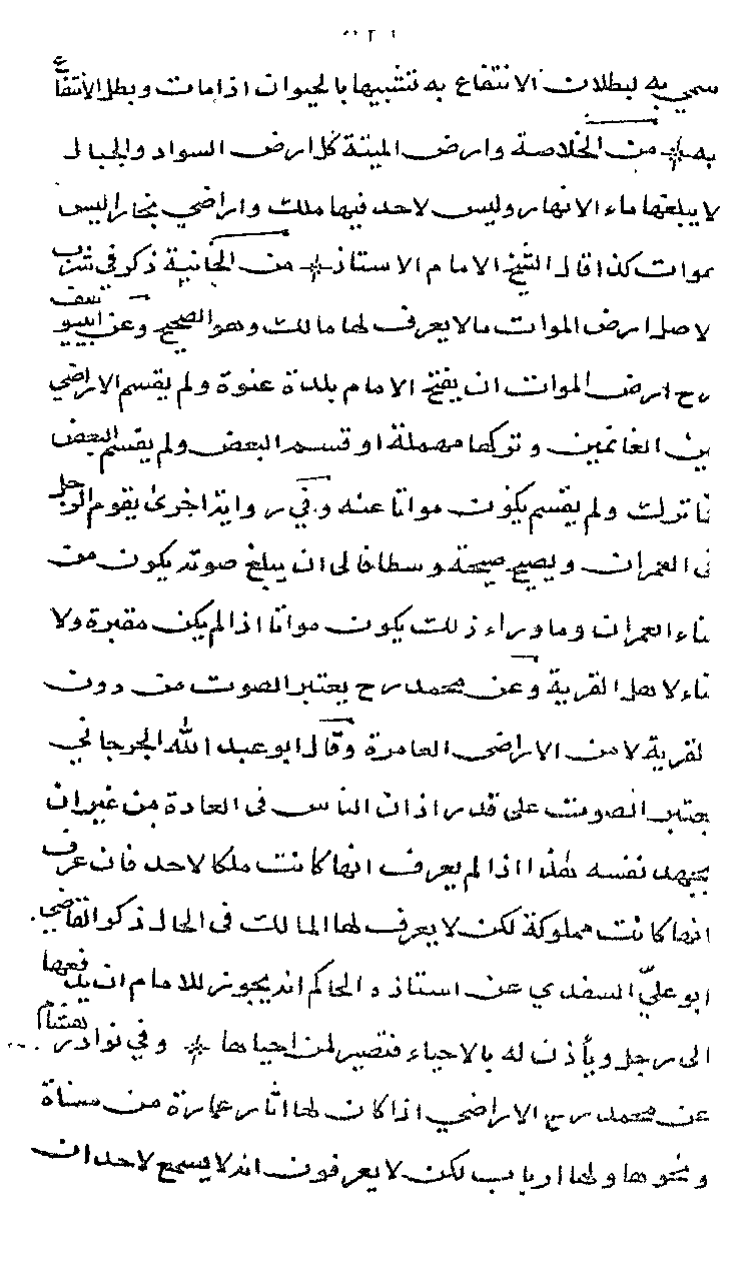 سمي به لبطلان الانتفاع به تشبيها بالحيوان اذا مات وبطل الانتفاع
به * من الخلاصة وارض الميتة كل ارض السواد والجبال
لا يبلغها ماء الانهار وليس لاحد فيها ملك واراضي بخارا ليس
بموات كذا قال الشيخ الامام الاستاذ * من الخانية ذكر في
لاصل ارض الموات ما لا يعرف لها مالك وهو الصحيح وعن ابي يوسف
رح ارض الموات ان يفتح الامام بلدة عنوة ولم يقسم الاراضي
بين الغانمين وتركها مهملة او قسم البعض ولم يقسم البعض
فما ترك ولم يقسم يكون مواتا عنه وفي رواية اخرى يقوم الرجل
في العمران ويصيح صيحة وسطا فالى ان يبلغ صوته يكون من
فناء العمران وما وراء ذلك يكون مواتا اذا لم يكن مقبرة ولا
فناء لاهل القرية وعن محمد رح يعتبر الصوت من دون
لقرية لا من الاراضي العامرة وقال ابو عبد الله الجرجاني
يعتبر الصوت على قدر اذان الناس في العادة من غير ان
يجهد نفسه هذا اذا لم يعرف انها كانت ملكا لاحد فان عرف
انها كانت مملوكة لكن لا يعرف لها المالك في الحال ذكر القاضي
ابو علي السغدي عن استاذه الحاكم انه يجوز للامام ان يدفعها
الى رجل ويأذن له بالاحياء فتصير لمن احياها * وفي نوادر هشام
عن محمد رح الاراضي اذا كان لها اثار عمارة من مسناة
ونحوها ولها ارباب لكن لا يعرفون انه لا يسمع لاحد ان